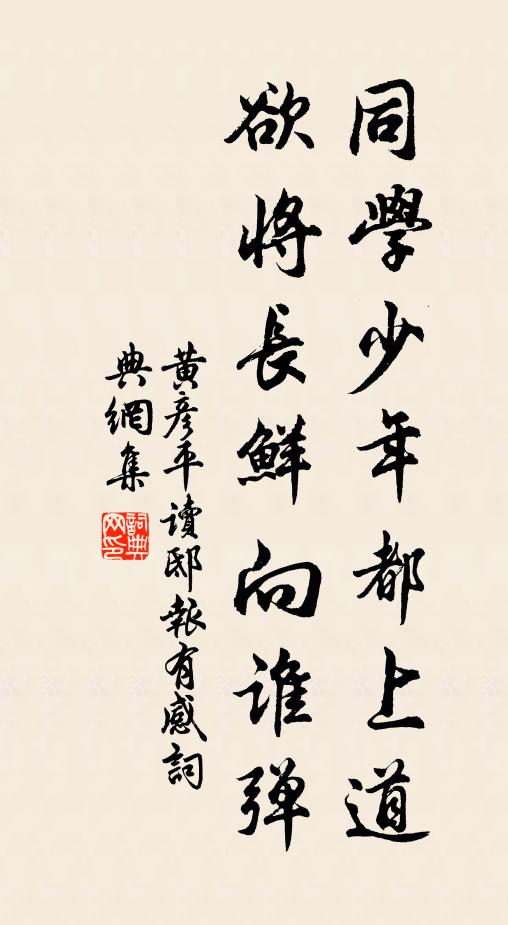 同學少年都上道
欲將長鮮向誰彈
黃彥平讀邸報有感詞
典網集
詞典
网印